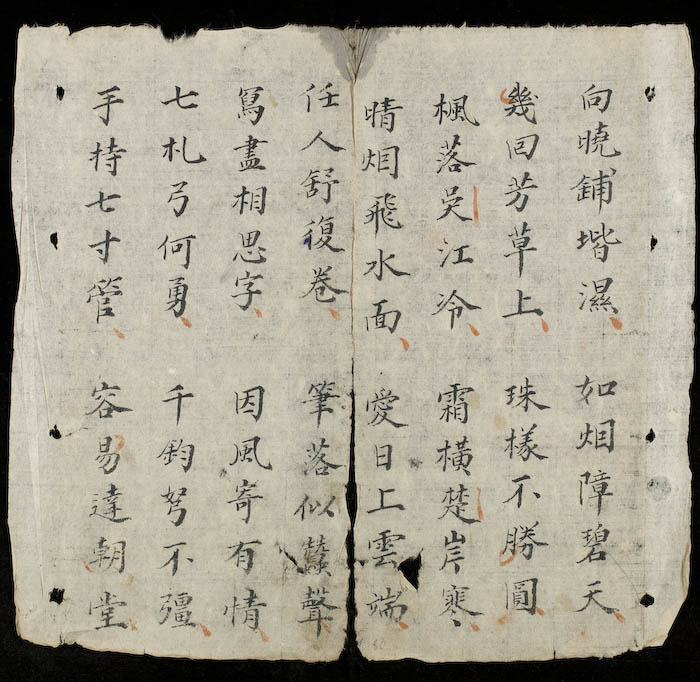 向曉鋪堦濕 如烟障碧天
幾回芳草上 珠樣不勝圓
楓落吳江冷 霜橫楚岸寒
晴烟飛水面 愛日上雲端
任人舒復卷 筆落似蠶聲
寫盡相思字 因風寄有情
七札弓何勇 千鈞弩不彊
手持七寸管 容易達朝堂